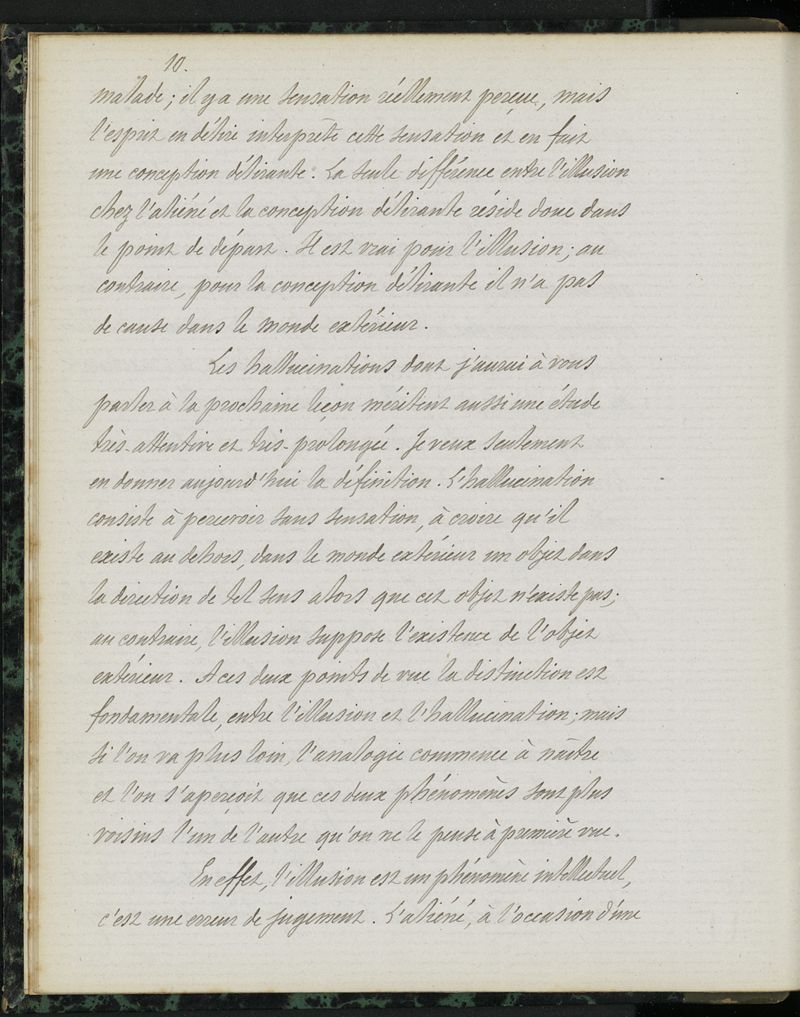 10.
malade; il y a une sensation réellement perçue, mais
l'esprit en délire interprète cette sensation et en fait
une conception délirante. La seule différence entre l'illusion
chez l'aliéné et la conception délirante réside donc dans
le point de départ. Il est vrai pour l'illusion; au
contraire, pour la conception délirante il n'a pas
de cause dans le monde extérieur.
Les hallucinations dont j'aurai à vous
parler à la prochaine leçon méritent aussi une étude
très-attentive et très-prolongée. Je veux seulement
en donner aujourd'hui la définition. L'hallucination
consiste à percevoir sans sensation, à croire qu'il
existe au dehors, dans le monde extérieur un objet dans
la direction de tel sens alors que cet objet n'existe pas;
au contraire, l'illusion suppose l'existence de l'objet
extérieur. A ces deux points de vue la distinction est
fondamentale, entre l'illusion et l'hallucination; mais
si l'on va plus loin, l'analogie commence à naître
et l'on s'aperçoit que ces deux phénomènes sont plus
voisins l'un de l'autre qu'on ne le pense à première vue.
En effet, l'illusion est un phénomène intellectuel,
c'est une erreur de jugement. L'aliéné, à l'occasion d'une